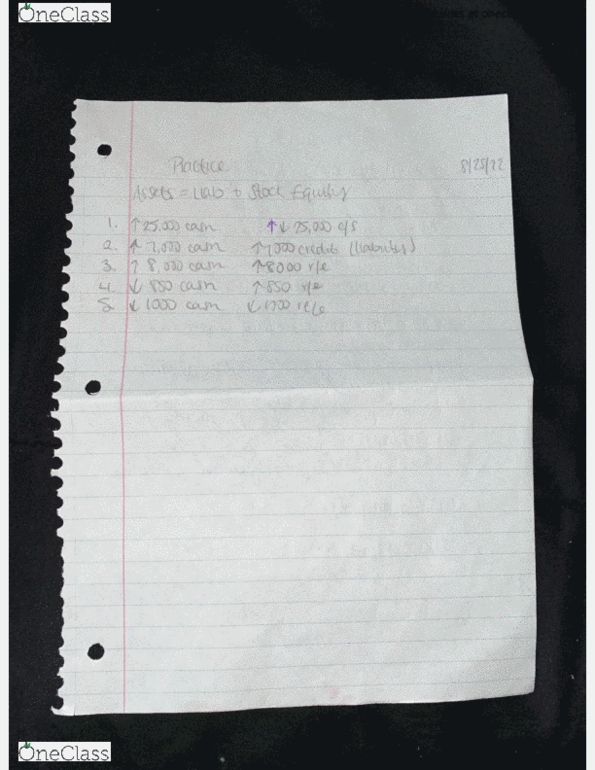 OneClass
Practice 8/25/22
Assets = Liab + Stock Equity
1. ↑ 25,000 cash ↑↓ 25,000 c/s
2. ↑ 7,000 cash ↑ 7000 credits (liabilities)
3. ↑ 8,000 cash ↑ 8000 r/e
4. ↓ 850 cash ↑ 850 r/e
5. ↓ 1000 cash ↓
OneClass